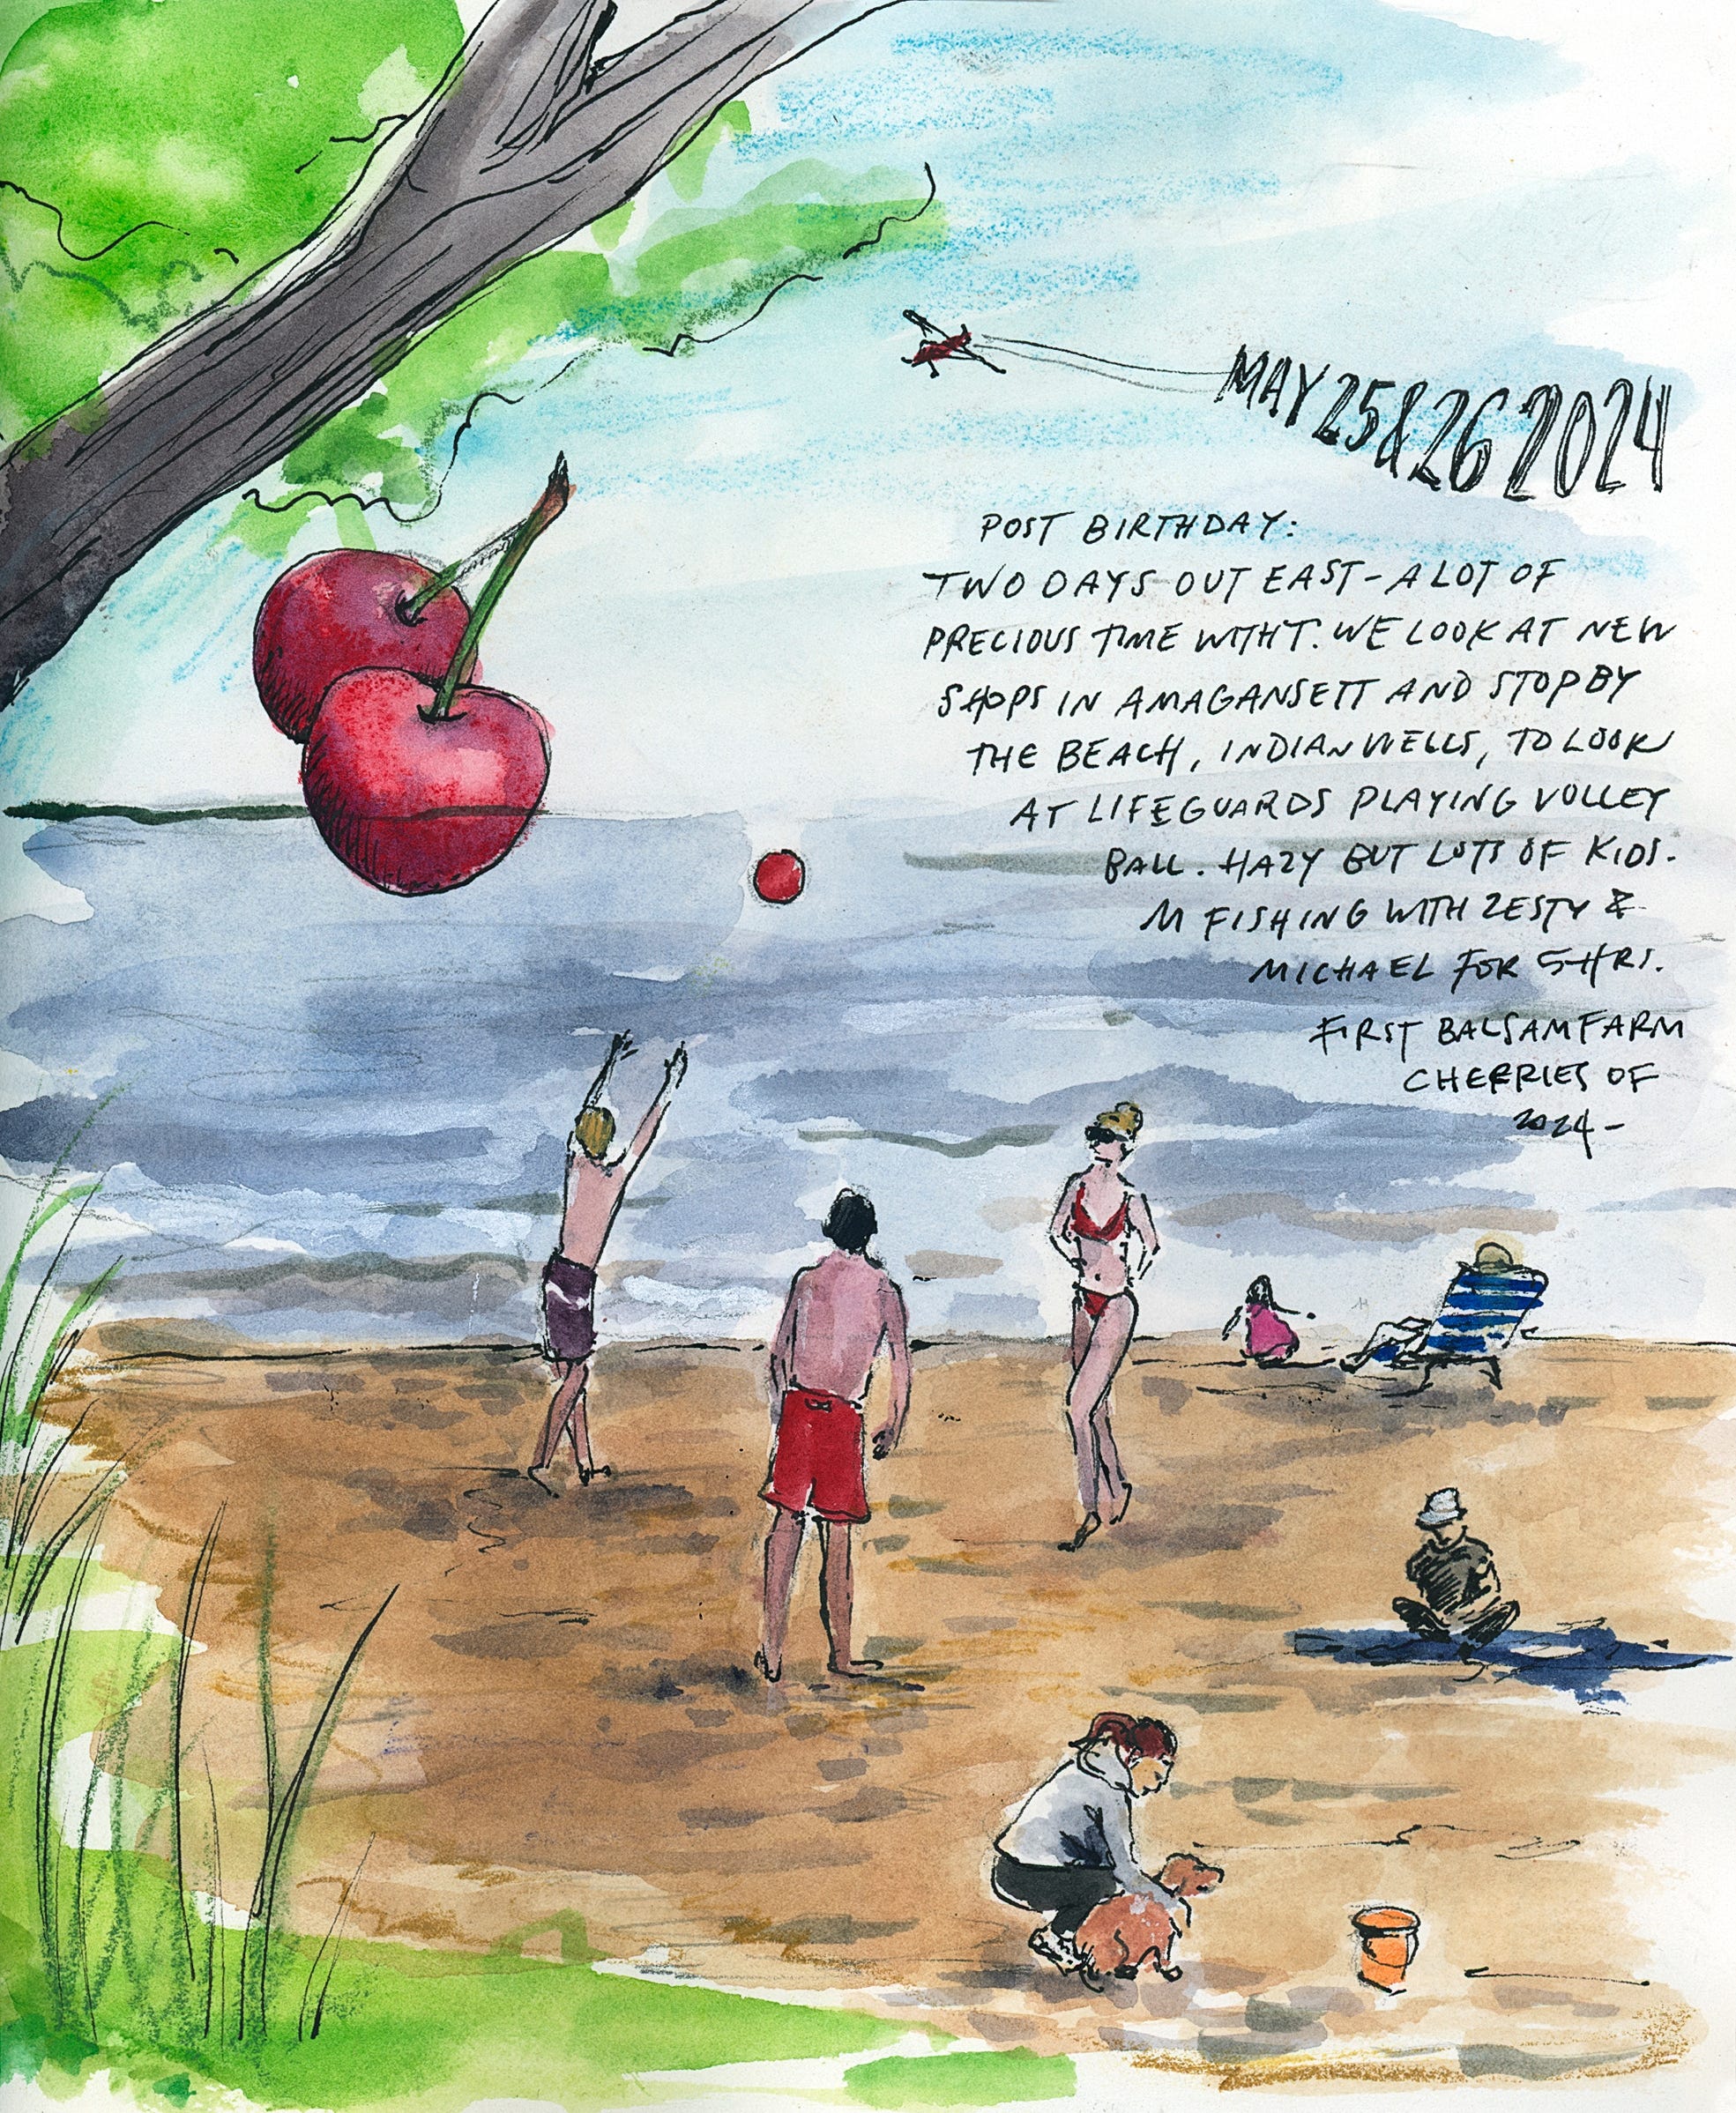 MAY 25 & 26 2024
POST BIRTHDAY:
TWO DAYS OUT EAST - A LOT OF
PRECIOUS TIME WITH T. WE LOOK AT NEW
SHOPS IN AMAGANSETT AND STOP BY
THE BEACH, INDIAN WELLS, TO LOOK
AT LIFEGUARDS PLAYING VOLLEY
BALL. HAZY BUT LOTS OF KIDS.
M FISHING WITH ZESTY &
MICHAEL FOR 5 HRS.
FIRST BALSAM FARM
CHERRIES OF
2024 -